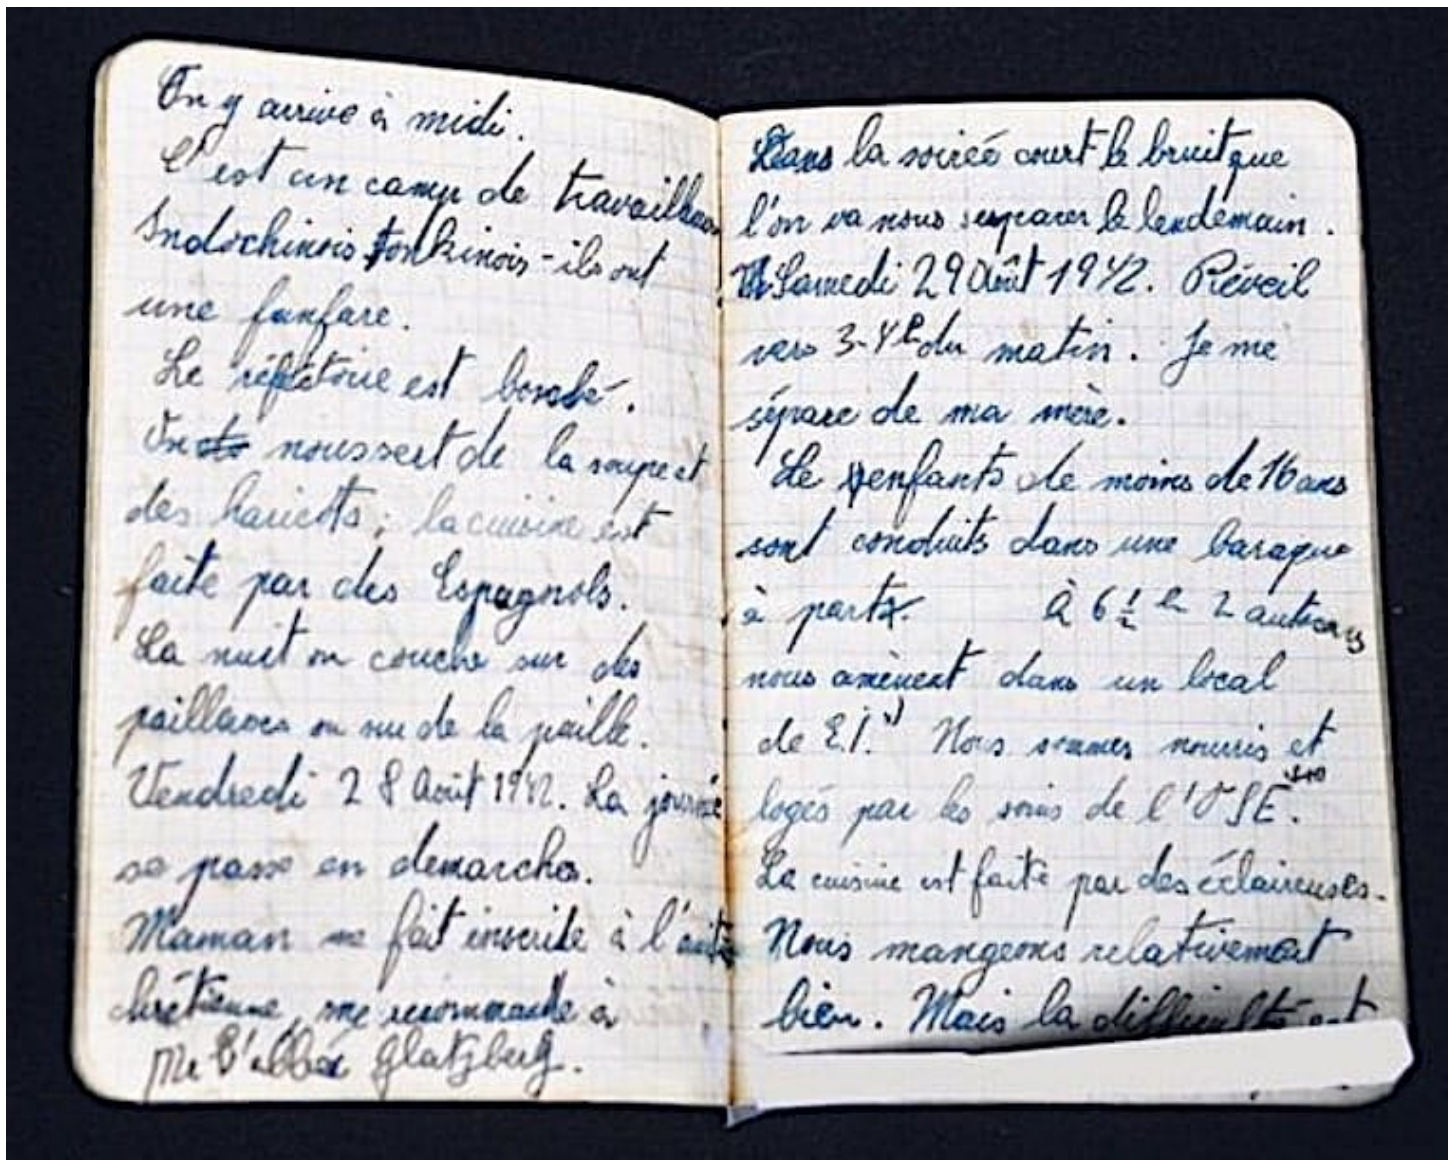 On y arrive à midi.
C'est un camp de travailleurs
Indochinois Tonkinois - ils ont
une fanfare.
Le réfectoire est bombé.
On nous sert de la soupe et
des haricots ; la cuisine est
faite par des Espagnols.
La nuit on couche sur des
paillasses ou sur de la paille.
Vendredi 28 Août 1942. La journée
se passe en démarches.
Maman me fait inscrite à l'amitié
chrétienne, me recommande à
Mr l'abbé Glatzberg.
Dans la soireé court le bruit que
l'on va nous separer le lendemain.
Samedi 29 Août 1942. Réveil
vers 3-4h du matin. Je me
sépare de ma mère.
Le enfants de moins de 16 ans
sont conduits dans une baraque
à part. À 6 1/2 h 2 autocars
nous amènent dans un local
de E.I. Nous sommes nourris et
logés par les soins de l'OSE.
La cuisine est faite par des éclaireuses.
Nous mangeons relativement
bien. Mais la difficulté est